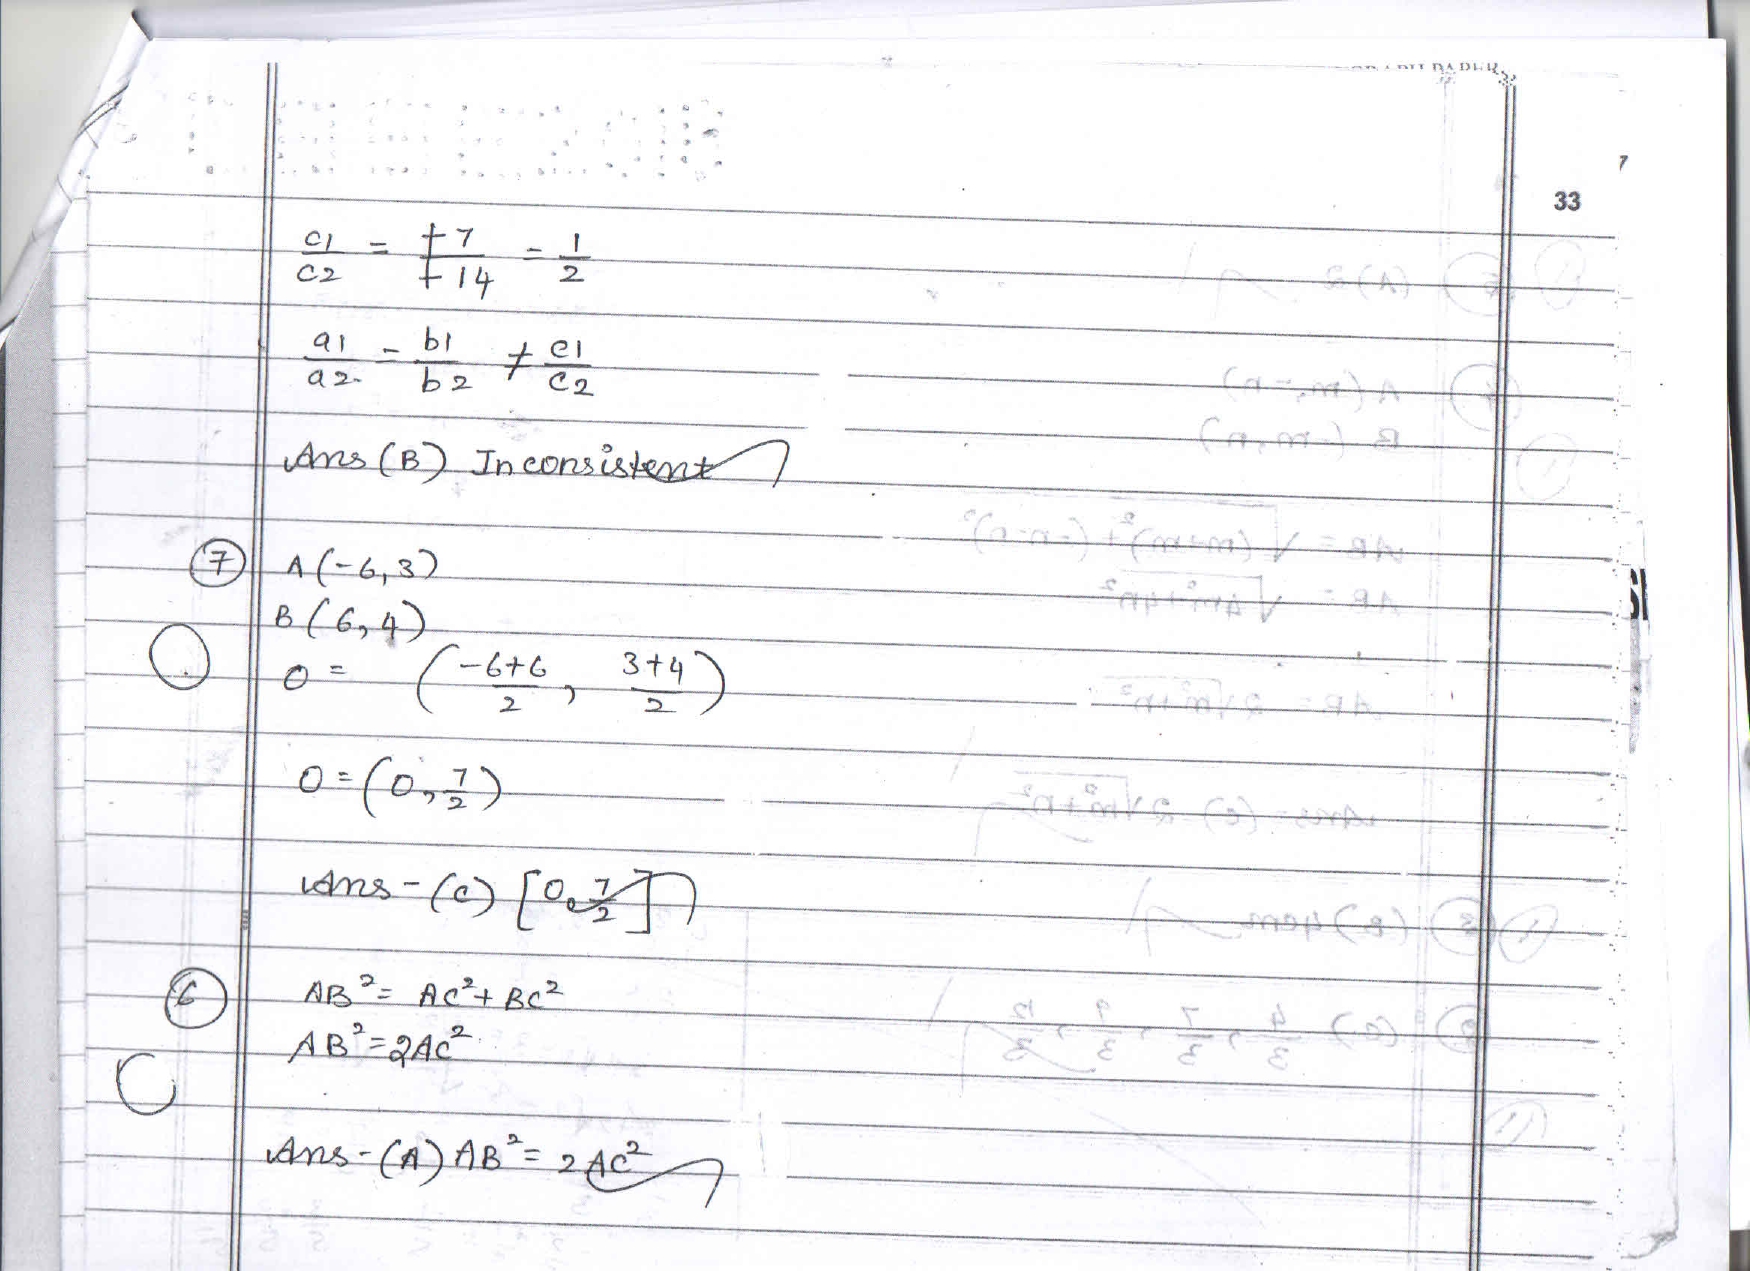 33
c1/c2 = +7/+14 = 1/2
a1/a2 = b1/b2 ≠ c1/c2
Ans (B) Inconsistent
7 A(-6, 3)
B(6, 4)
O = (-6+6/2, 3+4/2)
O = (0, 7/2)
Ans - (C) [0, 7/2]
6 AB² = AC² + BC²
AB² = 2AC²
Ans - (A) AB² = 2AC²